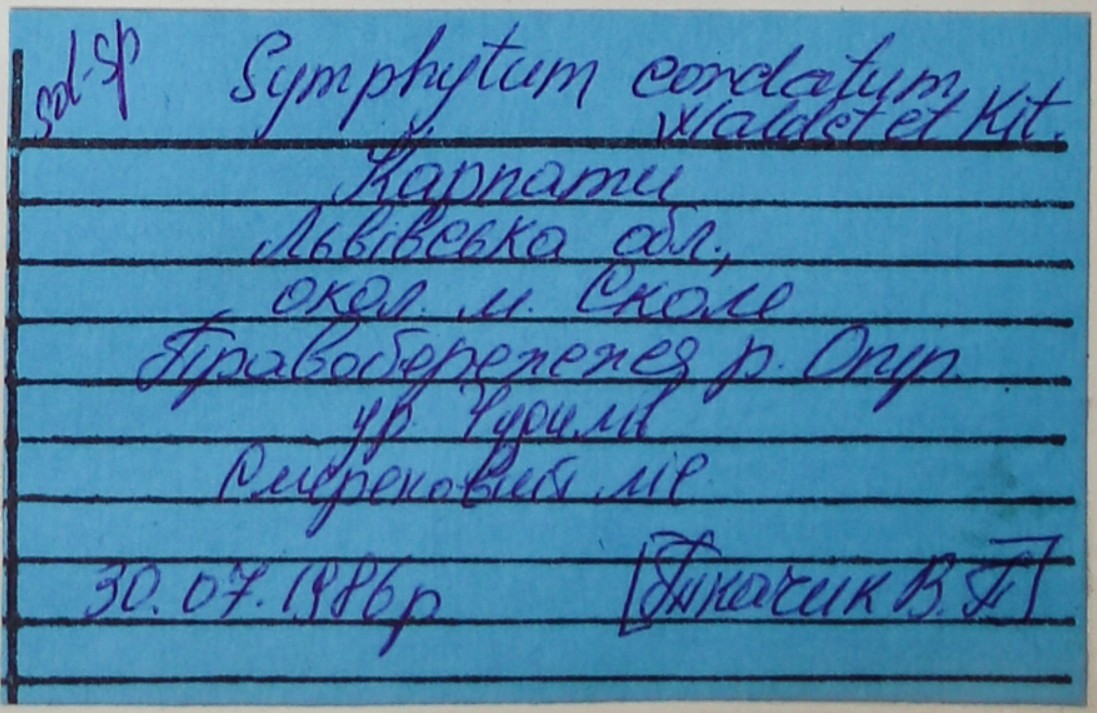 sol-sp
Symphytum cordatum
Waldst et Kit.
Карпати
Львівська обл.,
окол. м. Сколе
Правобережжя р. Опір.
ур.
Смерековий ліс
30.07.1986р
[Ткачик В.П]